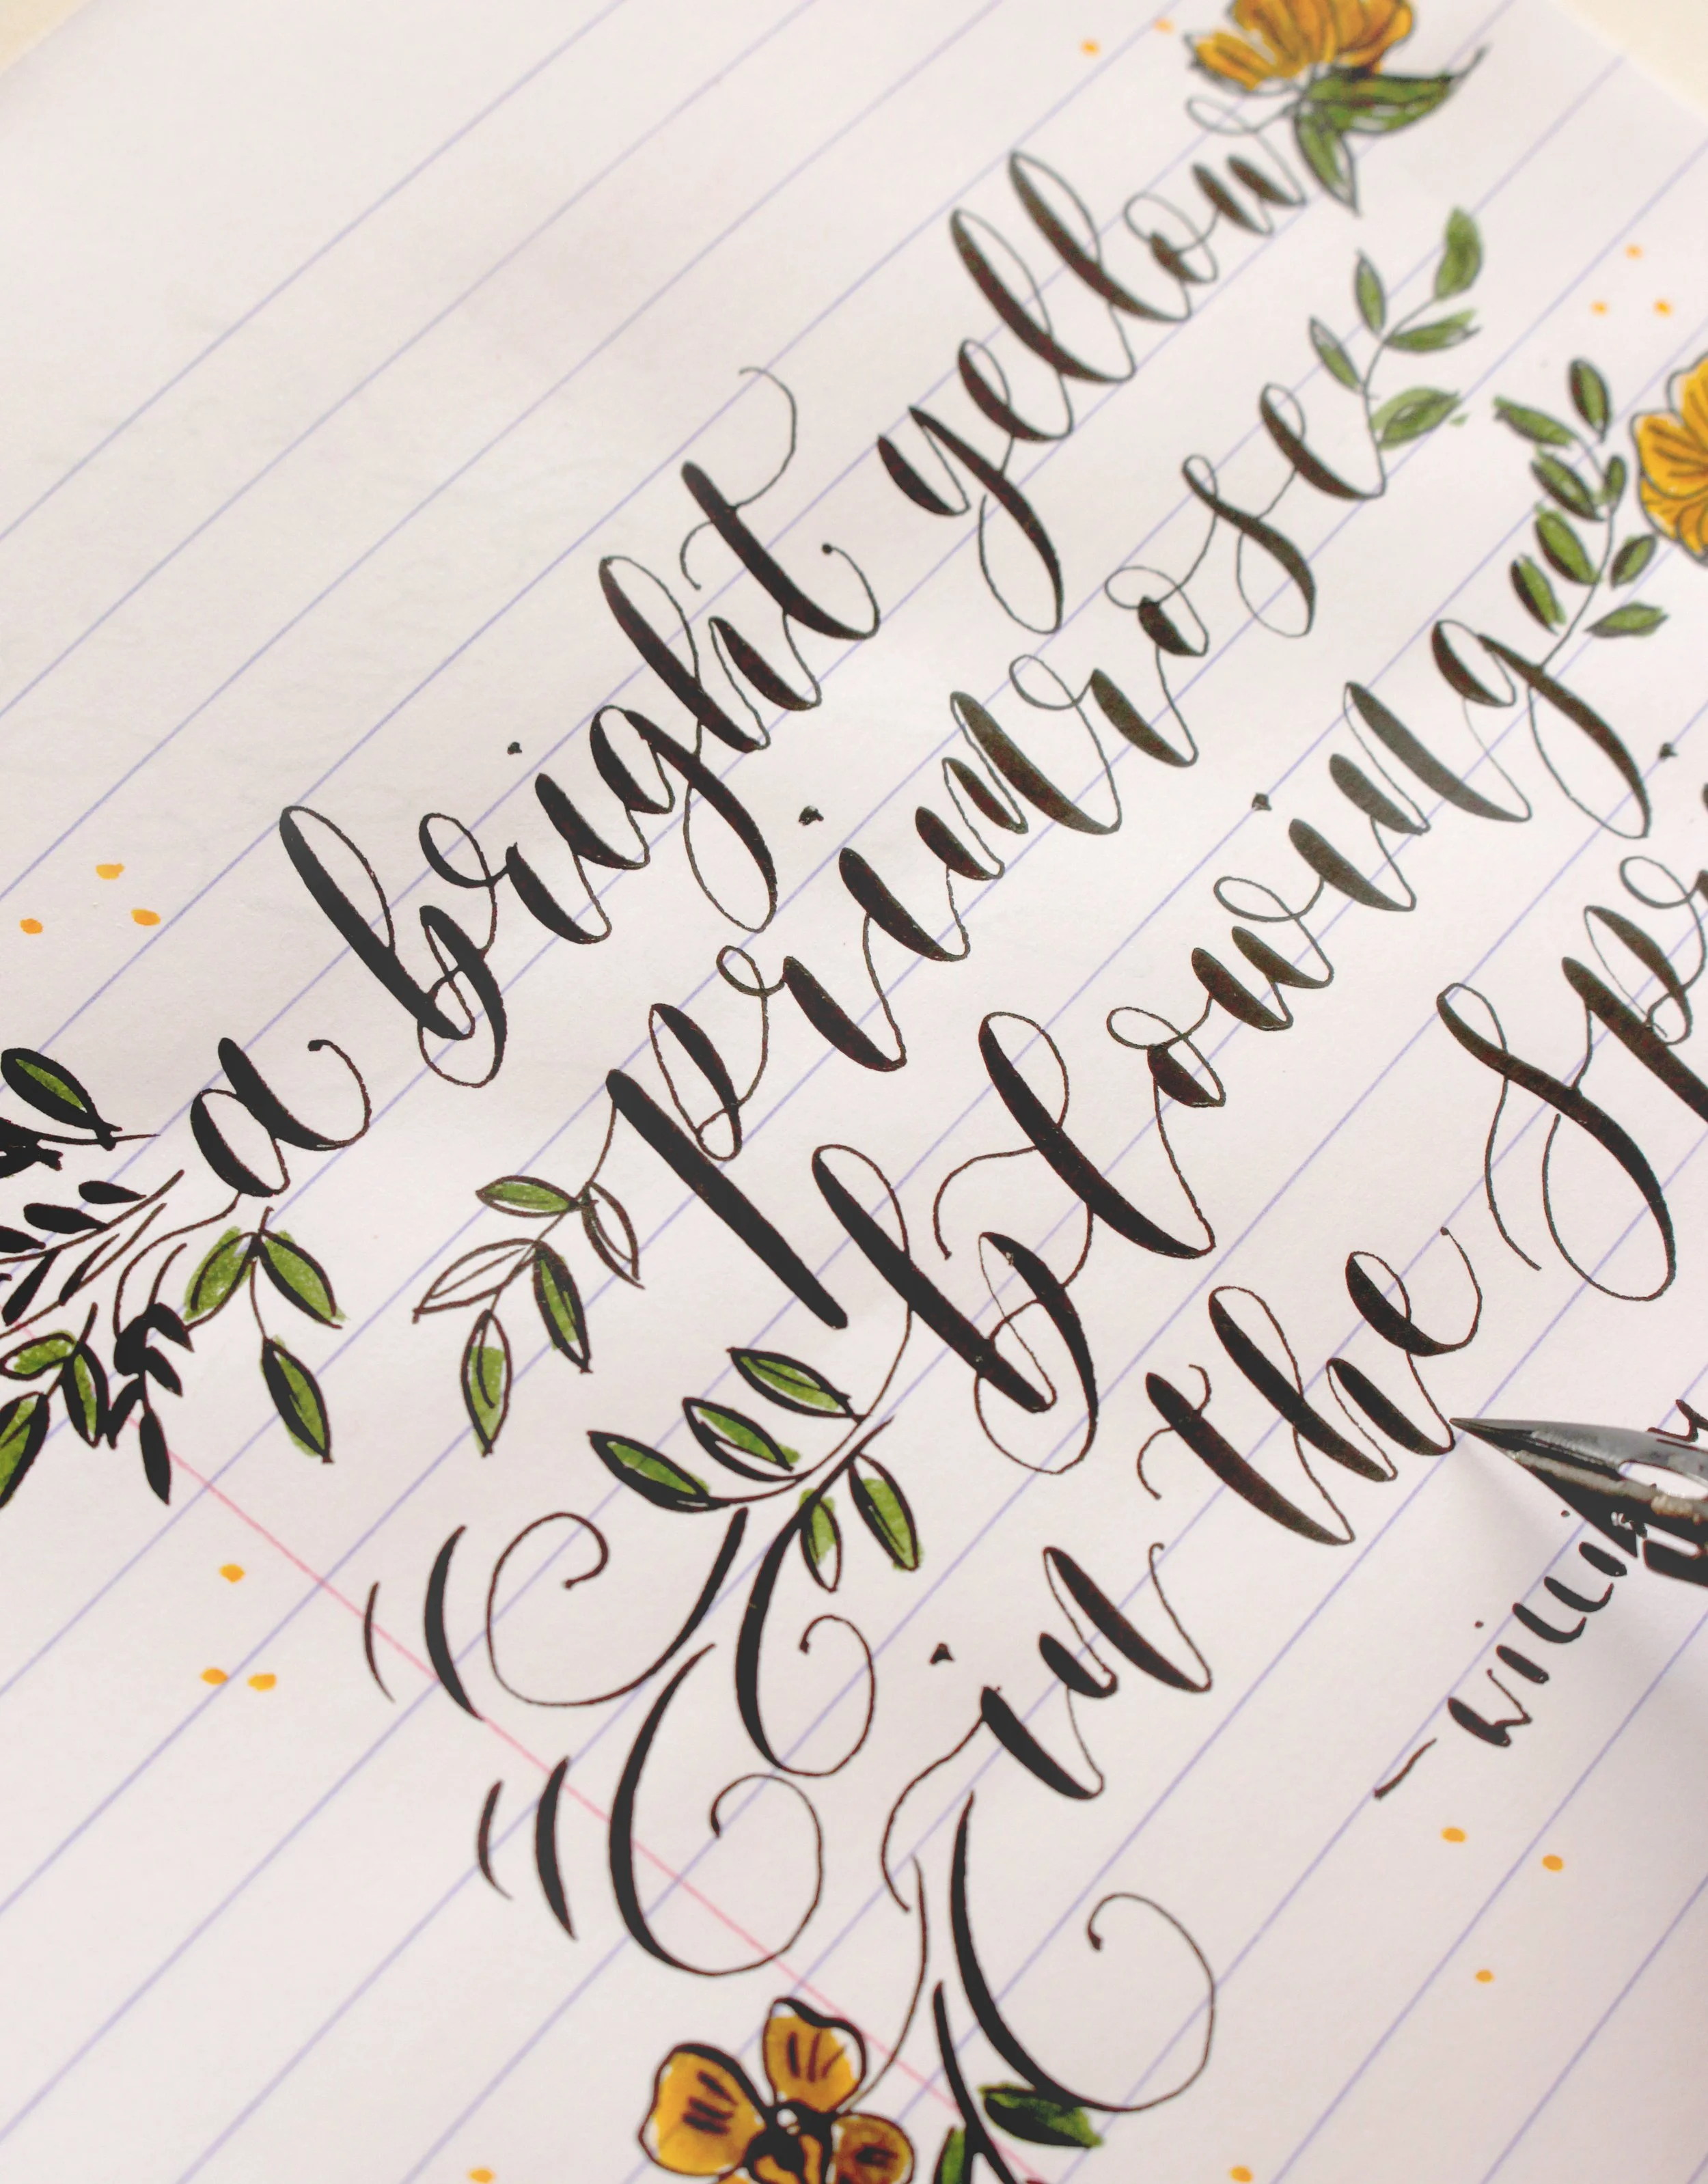 a bright yellow
primrose
blowing
in the Sp
- WILLI